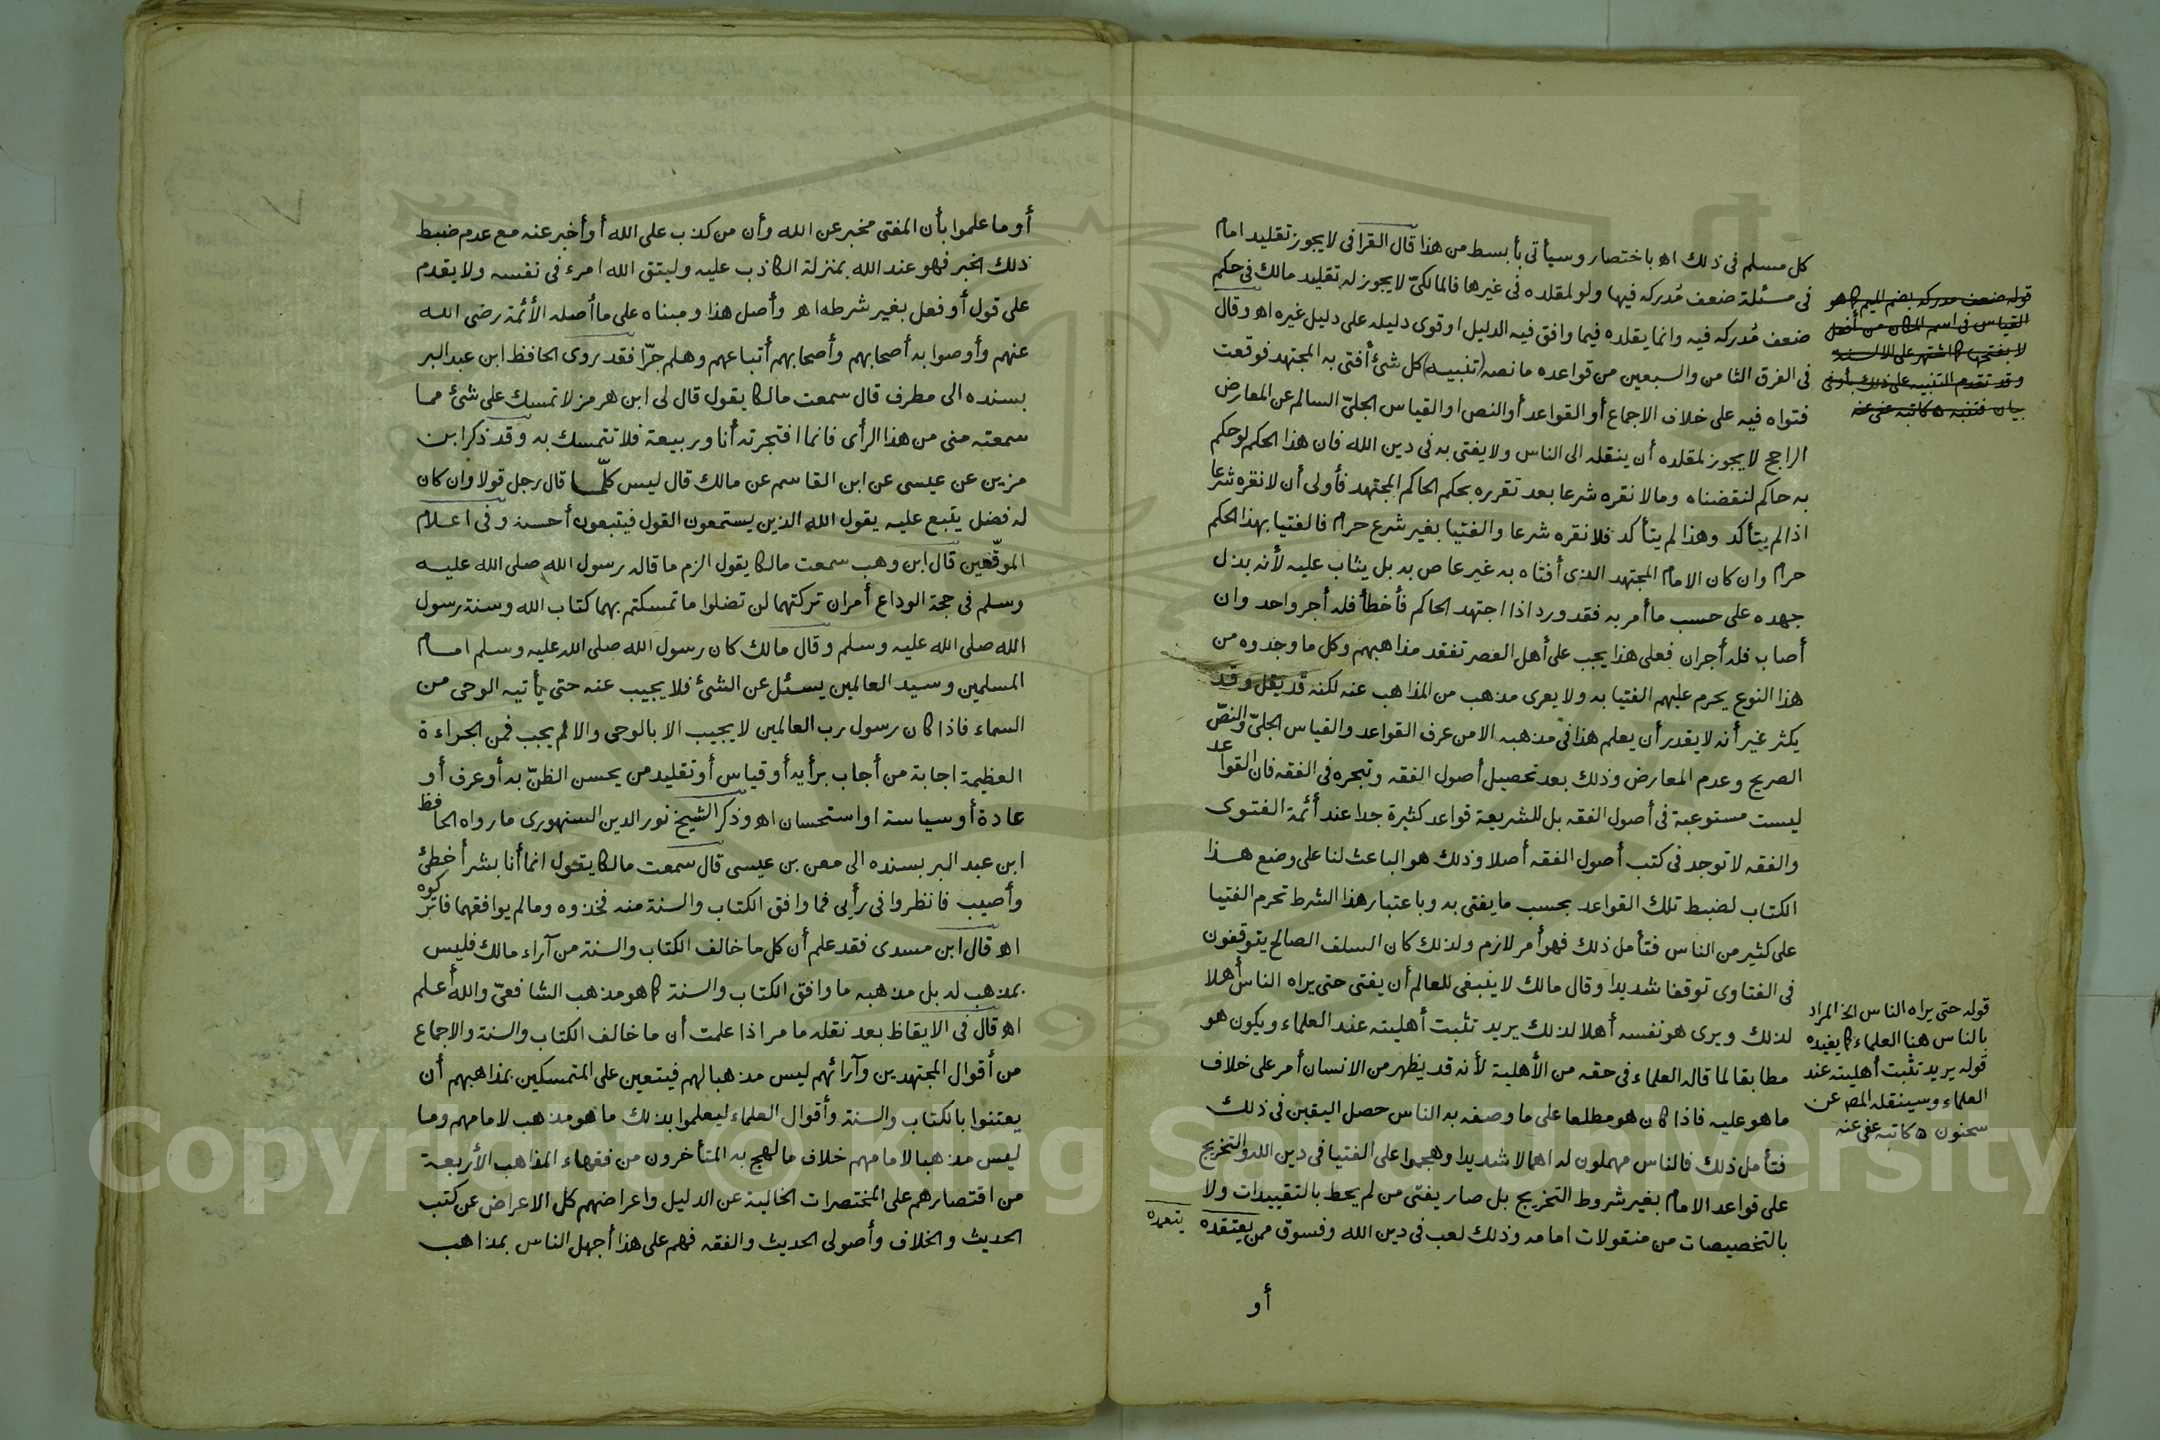 كل مسلم فى ذلك اه باختصار وسيأتى بأبسط من هذا قال القرافى لا يجوز تقليد امام
فى مسئلة ضعف مُدركه فيها ولو لمقلده فى غيرها فالمالكىّ لا يجوز له تقليد مالك فى حكم
ضعف مُدركه فيه وانما يقلده فيما وافق فيه الدليل او قوى دليله على دليل غيره اه وقال
فى الفرق الثامن والسبعين من قواعده ما نصه (تنبيه) كل شئ أفتى به المجتهد فوقعت
فتواه فيه على خلاف الاجماع أو القواعد أو النص او القياس الجلىّ السالم عن المعارض
الراجح لا يجوز لمقلده أن ينقله الى الناس ولا يفتى به فى دين الله فان هذا الحكم لو حكم
به حاكم لنقضناه وما لا نقره شرعا بعد تقرره بحكم الحاكم المجتهد فأولى أن لا نقره شرعا
اذا لم يتأكد وهذا لم يتأكد فلا نقره شرعا والفتيا بغير شرع حرام فالفتيا بهذا الحكم
حرام وان كان الامام المجتهد الذى أفتاه به غير عاص به بل يثاب عليه لأنه بذل
جهده على حسب ما أمر به فقد ورد اذا اجتهد الحاكم فأخطأ فله أجر واحد وان
أصاب فله أجران فعلى هذا يجب على أهل العصر تفقد مذاهبهم وكل ما وجدوه من
هذا النوع يحرم عليهم الفتيا به ولا يعرى مذهب من المذاهب عنه لكنه قد يقل وقد
يكثر غير أنه لا يقدر أن يعلم هذا فى مذهبه الا من عرف القواعد والقياس الجلىّ والنصّ
الصريح وعدم المعارض وذلك بعد تحصيل أصول الفقه وتبحره فى الفقه فان القواعد
ليست مستوعبة فى أصول الفقه بل للشريعة قواعد كثيرة جدا عند أئمة الفتوى
والفقه لا توجد فى كتب أصول الفقه أصلا وذلك هو الباعث لنا على وضع هذا
الكتاب لضبط تلك القواعد بحسب ما يفتى به وباعتبار هذا الشرط تحرم الفتيا
على كثير من الناس فتأمل ذلك فهو أمر لازم ولذلك كان السلف الصالح يتوقفون
فى الفتاوى توقفا شديدا وقال مالك لا ينبغى للعالم أن يفتى حتى يراه الناس أهلا
لذلك ويرى هو نفسه أهلا لذلك يريد تثبت أهليته عند العلماء ويكون هو
مطابقا لما قاله العلماء فى حقه من الأهلية لأنه قد يظهر من الانسان أمر على خلاف
ما هو عليه فاذا كان هو مطلعا على ما وصفه به الناس حصل اليقين فى ذلك
فتأمل ذلك فالناس مهملون له اهمالا شديدا وهجموا على الفتيا فى دين الله والتخريج
على قواعد الامام بغير شروط التخريج بل صار يفتى من لم يحط بالتقييدات ولا
بالتخصيصات من منقولات امامه وذلك لعب فى دين الله وفسوق ممن يعتقده
أو
قوله ضعف مدركه بضم الميم كما هو
القياس فى اسم المكان من أفعل
لا بفتحها كما اشتهر على الالسنة
وقد تقدم التنبيه على ذلك بأوفى
بيان فتنبه ه كاتبه عفى عنه
قوله حتى يراه الناس الخ المراد
بالناس هنا العلماء كما يفيده
قوله يريد تثبت أهليته عند
العلماء وسينقله المص عن
سحنون ه كاتبه عفى عنه
يتعمده
أو ما علموا بأن المفتى مخبر عن الله وأن من كذب على الله أو أخبر عنه مع عدم ضبط
ذلك الخبر فهو عند الله بمنزلة الكاذب عليه وليتق الله امرء فى نفسه ولا يقدم
على قول أو فعل بغير شرطه اه وأصل هذا ومبناه على ما أصله الأئمة رضى الله
عنهم وأوصوا به أصحابهم وأصحابهم أتباعهم وهلم جرّا فقد روى الحافظ ابن عبد البر
بسنده الى مطرف قال سمعت مالكا يقول قال لى ابن هرمز لا تمسك على شئ مما
سمعته منى من هذا الرأى فانما افتجرته أنا وربيعة فلا تتمسك به وقد ذكر ابن
مزين عن عيسى عن ابن القاسم عن مالك قال ليس كلّما قال رجل قولا وان كان
له فضل يتبع عليه يقول الله الذين يستمعون القول فيتبعون أحسنه وفى اعلام
الموقّعين قال ابن وهب سمعت مالكا يقول الزم ما قاله رسول الله صلى الله عليه
وسلم فى حجة الوداع أمران تركتهما لن تضلوا ما تمسكتم بهما كتاب الله وسنة رسول
الله صلى الله عليه وسلم وقال مالك كان رسول الله صلى الله عليه وسلم امام
المسلمين وسيد العالمين يسئل عن الشئ فلا يجيب عنه حتى يأتيه الوحى من
السماء فاذا كان رسول رب العالمين لا يجيب الا بالوحى والا لم يجب فمن الجراءة
العظيمة اجابة من أجاب برأيه أو قياس أو تقليد من يحسن الظنّ به أو عرف أو
عادة أو سياسة او استحسان اه وذكر الشيخ نور الدين السنهورى ما رواه الحافظ
ابن عبد البر بسنده الى معن بن عيسى قال سمعت مالكا يقول انما أنا بشر أخطئ
وأصيب فانظروا فى رأيى فما وافق الكتاب والسنة منه فخذوه وما لم يوافقهما فاتركوه
اه قال ابن مسدى فقد علم أن كل ما خالف الكتاب والسنة من آراء مالك فليس
بمذهب له بل مذهبه ما وافق الكتاب والسنة كما هو مذهب الشافعىّ والله أعلم
اه قال فى الايقاظ بعد نقله ما مر اذا علمت أن ما خالف الكتاب والسنة والاجماع
من أقوال المجتهدين وآرائهم ليس مذهبا لهم فيتعين على المتمسكين بمذاهبهم أن
يعتنوا بالكتاب والسنة وأقوال العلماء ليعلموا بذلك ما هو مذهب لامامهم وما
ليس مذهبا لامامهم خلاف ما لهج به المتأخرون من فقهاء المذاهب الأربعة
من اقتصارهم على المختصرات الخالية عن الدليل واعراضهم كل الاعراض عن كتب
الحديث والخلاف وأصولى الحديث والفقه فهم على هذا أجهل الناس بمذاهب
٧
Copyright © King Saud University
1957